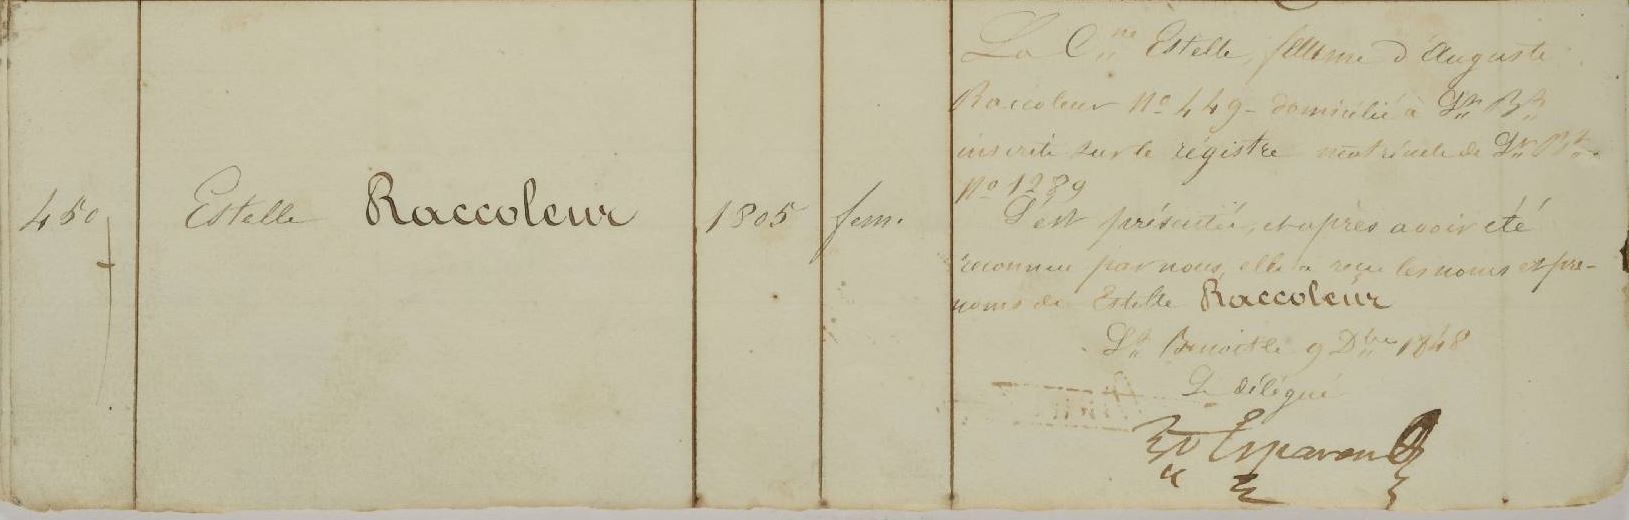 450
Estelle Raccoleur
1805
fem.
La C.ne Estelle, femme d'Auguste
Raccoleur No 449 - domicilié à St Bt
inscrite sur le régistre matricule de St Bt.
No 1289
S'est présentée, et après avoir été
reconnue par nous, elle a reçu les noms et pré-
noms de Estelle Raccoleur
St Benoit le 9 Dbre 1848
Le délégué